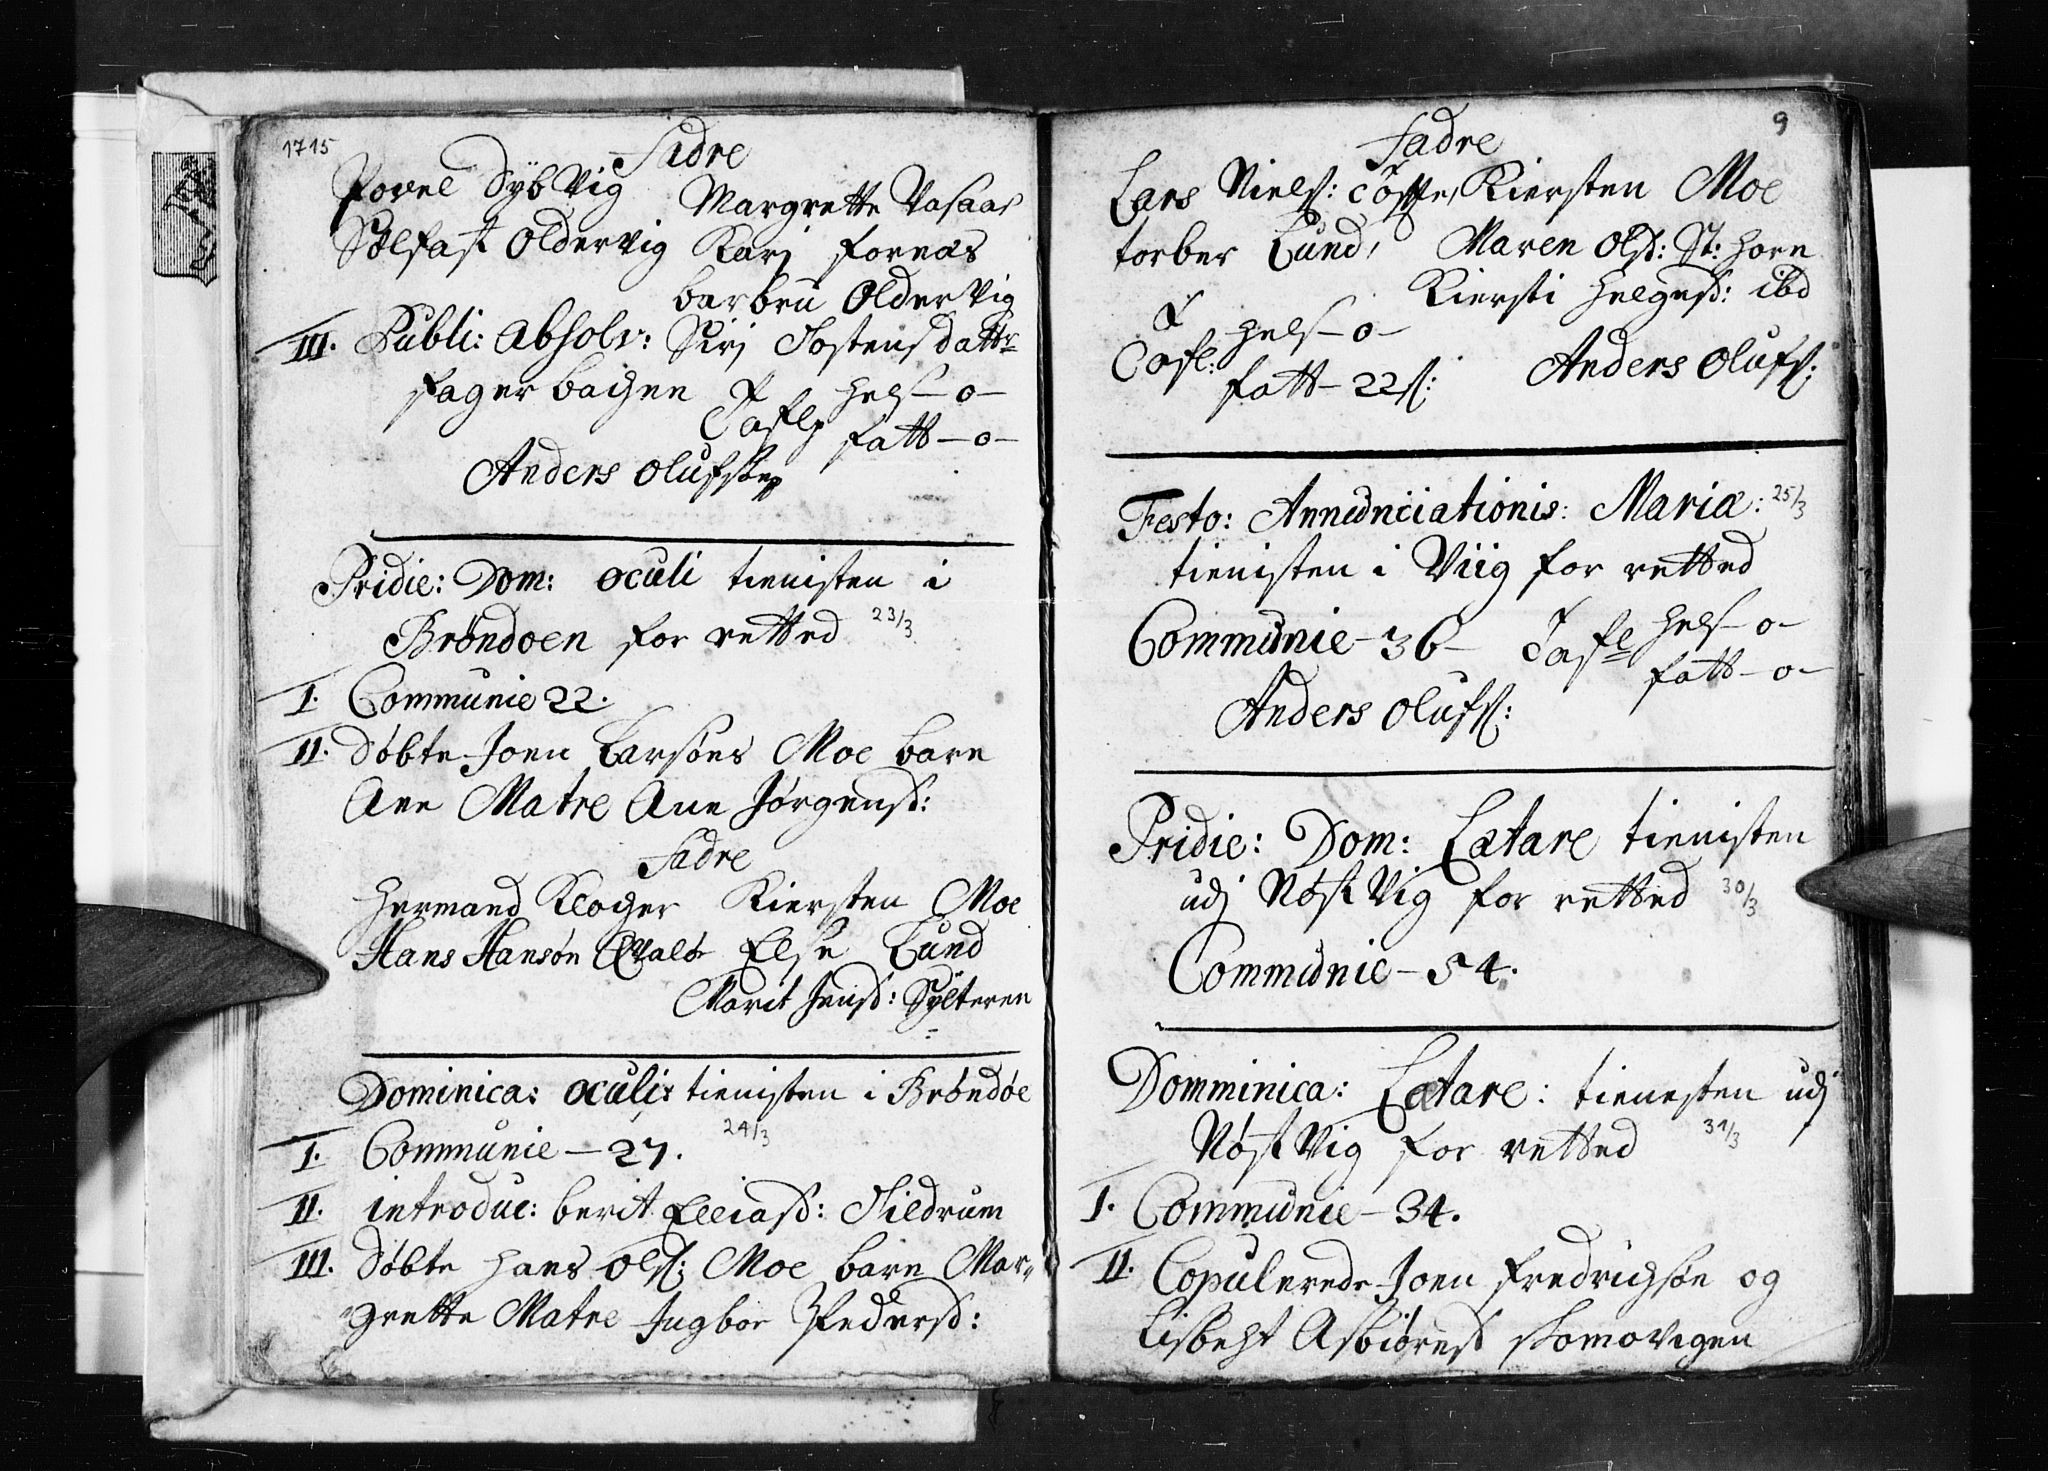 1715
Fadre
Povel Dybvig Margrette Vasaas
Solfast Oldervig Karj fornæs
barbru Oldervig
III. Publi: Absolv: Sirj Tostensdattr
fagerbachen Tafl helf-o-
fatt-o-
Anders Olufsøn
Pridie: Dom: Oculi tienisten i
Brøndøen for retted 23/3
I. Communie 22.
II. Døbte Joen Larsøns Moe barn
Ane Matre Ane Jørgensd:
Fadre
Hermand Klocher Kiersten Moe
Hans Hansøn Else Lund
Marit Jensd: Sylteren
Dominica: Oculi: tienisten i Brøndøe
24/3
I. Communie-27.
II. introduc: berit Elliasd: Tildrum
III. Døbte Hans Ols: Moe barn Mar-
grette Matre Ingbor Pedersd:
9
Fadre
Lars Niels: Kiersten Moe
torber Lund, Maren Olsd: St: horn
Kiersti Helgesd: ibd
Tafl: helf-o-
fatt-22s: Anders Olufs:
Festo: Annunciationis: Mariæ: 25/3
tienisten i Viig for retted
Communie-36- Tafl helf-o-
fatt-o-
Anders Olufs:
Pridie: Dom: Lætare tienisten
udj Nøstvig for retted 30/3
Communie-54.
Domminica: Lætare: tienesten udj
Nøstvig for retted 31/3
I. Communie-34.
II. Copulerede Joen fredrichsøn og
Lisbeht Asbiørnsd stomovigen